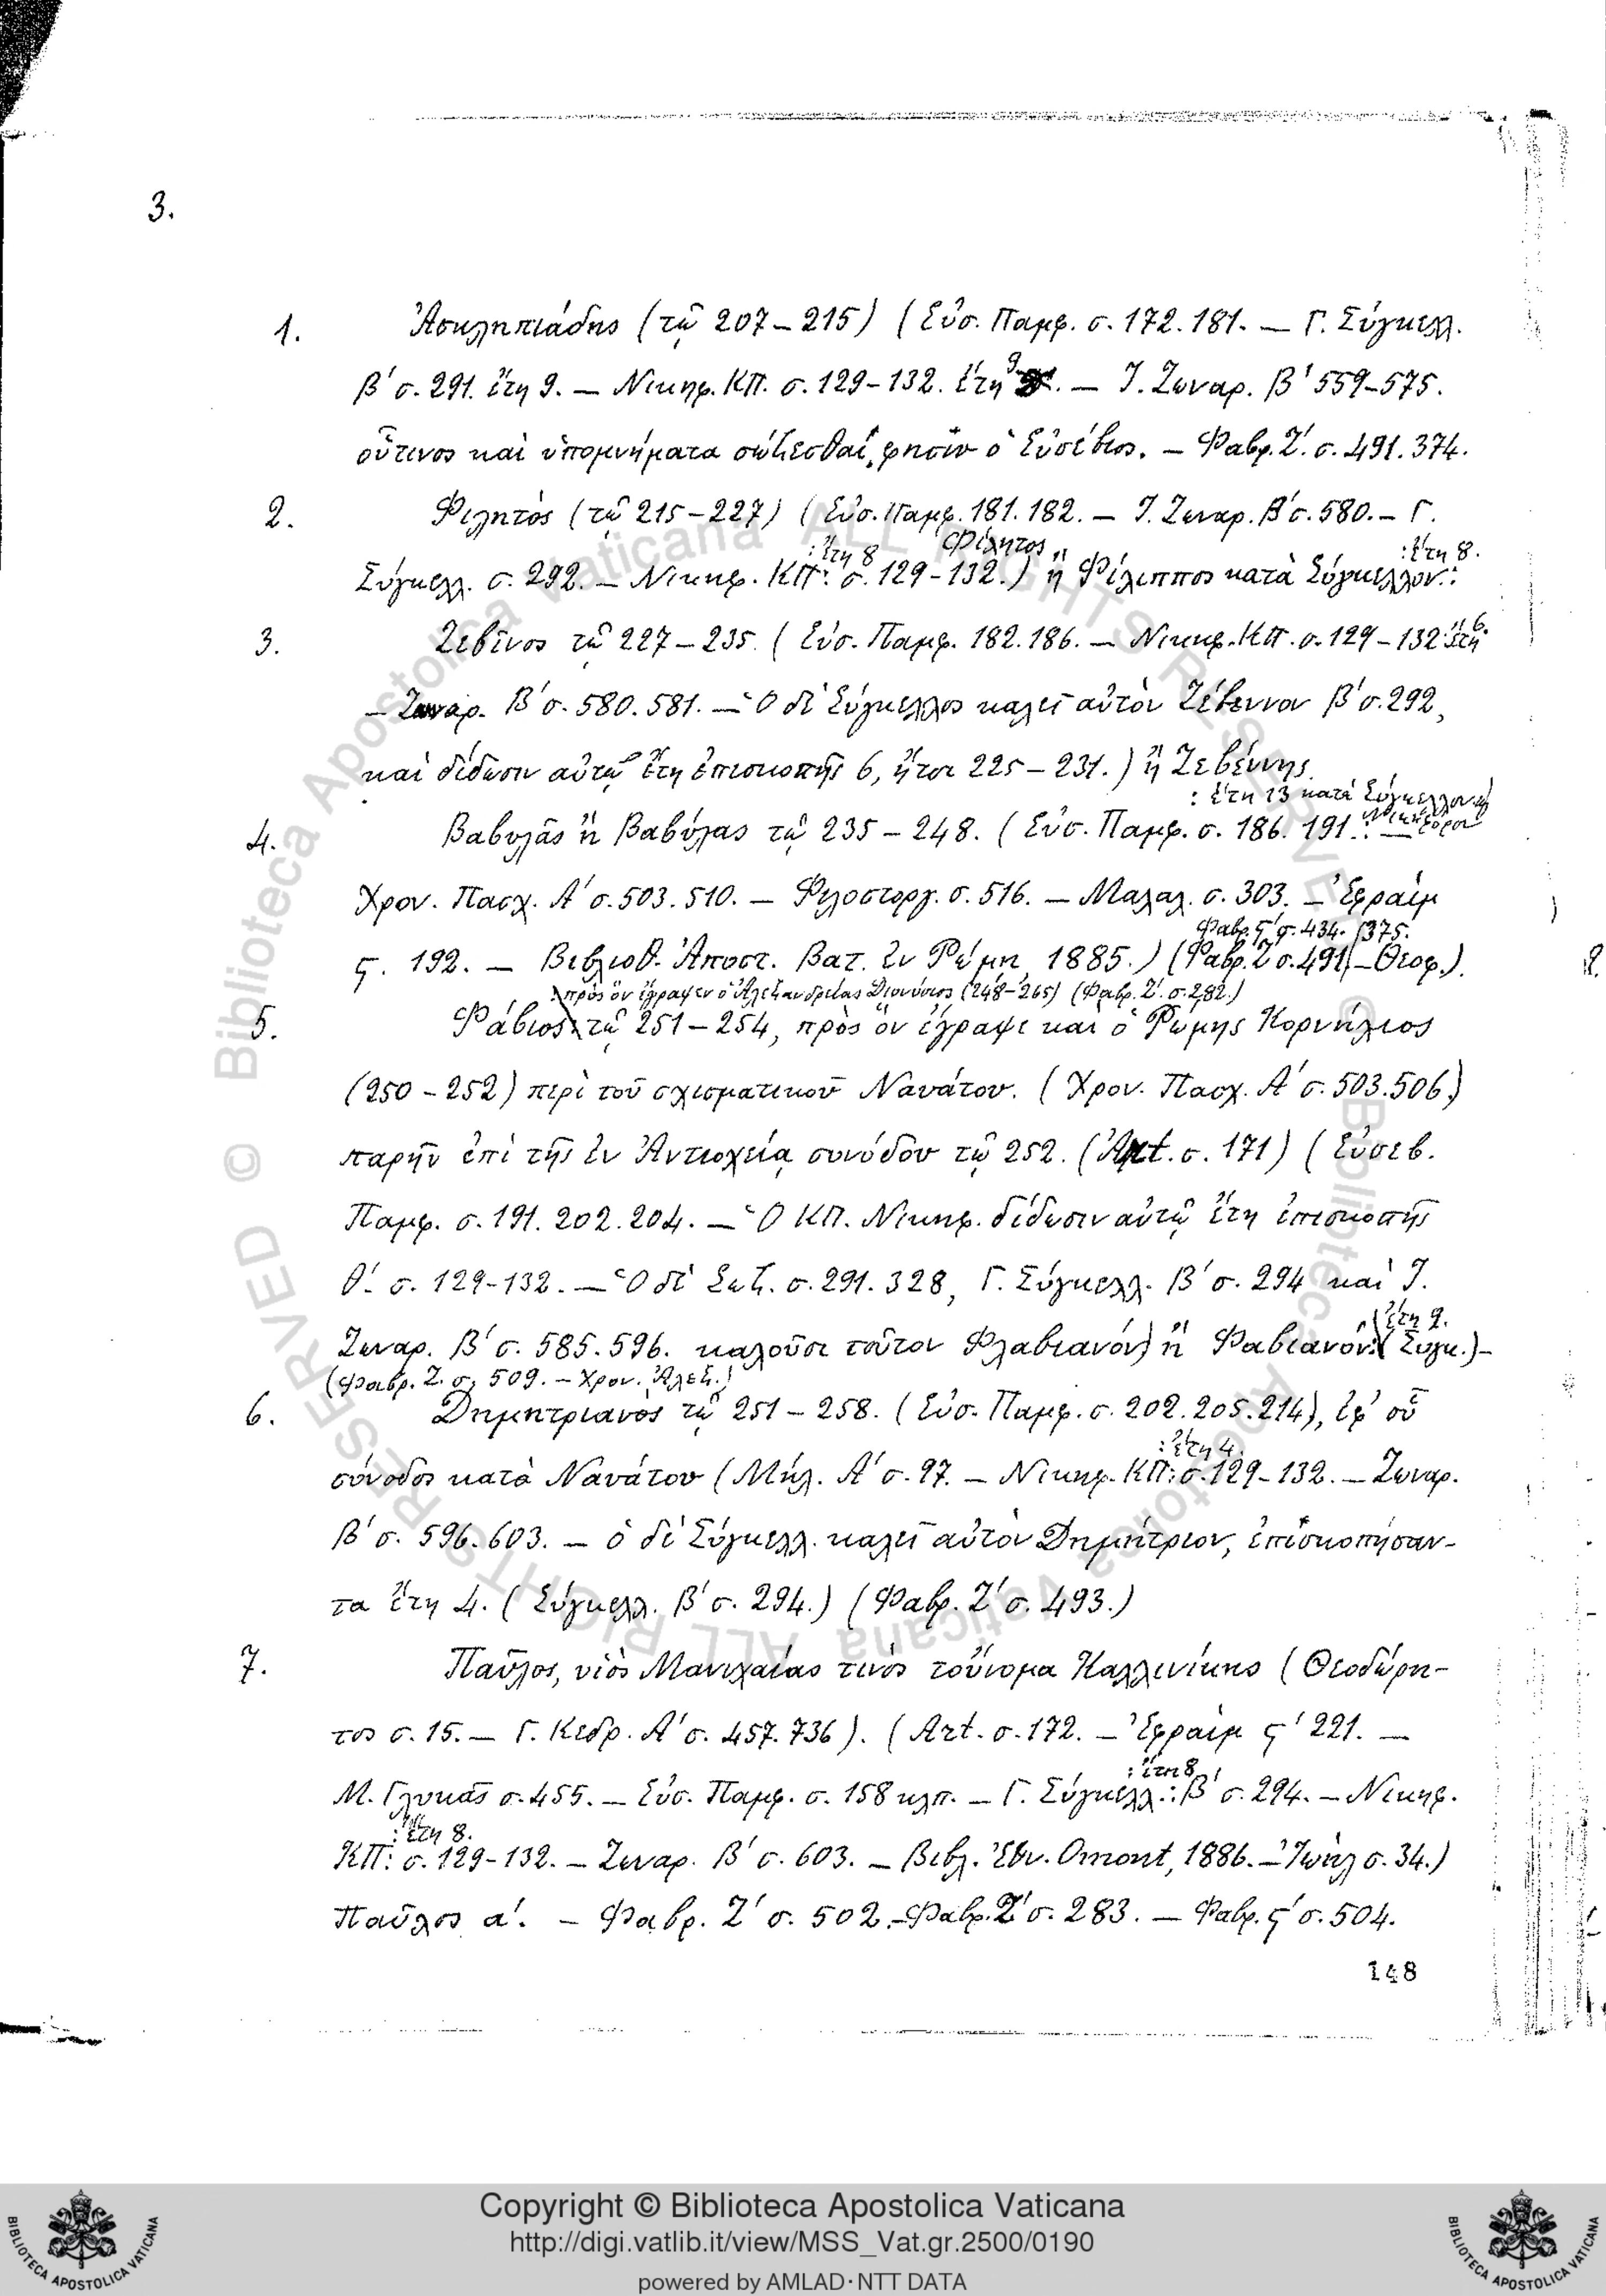 3.
1. Ἀσκληπιάδης (τῷ 207–215) (Εὐσ. Παμφ. σ. 172. 181. — Γ. Σύγκελλ.
β΄ σ. 291. ἔτη 9. — Νικηφ. ΚΠ. σ. 129–132. ἔτη 9. — Ἰ. Ζωναρ. Β΄ 559–575.
οὗτινος καὶ ὑπομνήματα σώζεσθαί φησιν ὁ Εὐσέβιος. — Φαβρ. Ζ΄. σ. 491. 374.
2. Φιλητὸς (τῷ 215–227) (Εὐσ. Παμφ. 181. 182. — Ἰ. Ζωναρ. Β΄ σ. 580. – Γ.
: ἔτη 8 Φίλητος : ἔτη 8.
Σύγκελλ. σ. 292. — Νικηφ. ΚΠ: σ. 129–132.) ἢ Φίλιππος κατὰ Σύγκελλον:
3. Ζεβῖνος τῷ 227–235. (Εὐσ. Παμφ. 182. 186. — Νικηφ. ΚΠ. σ. 129–132: ἔτη 6.
— Ζωναρ. Β΄ σ. 580. 581. — Ὁ δὲ Σύγκελλος καλεῖ αὐτὸν Ζέβεννον β΄ σ. 292,
καὶ δίδωσιν αὐτῷ ἔτη ἐπισκοπῆς 6, ἤτοι 225–231.) ἢ Ζεβέννης.
: ἔτη 13 κατὰ Σύγκελλον καὶ Νικηφόρον
4. Βαβυλᾶς ἢ Βαβύλας τῷ 235–248. (Εὐσ. Παμφ. σ. 186. 191: —
Χρον. Πασχ. Α΄ σ. 503. 510. — Φιλοστοργ. σ. 516. — Μαλαλ. σ. 303. — Ἐφραὶμ
Φαβρ. ϛ΄ σ. 434. 375.
ς. 192. — Βιβλιοθ. Ἀποστ. Βατ. ἐν Ῥώμῃ, 1885.) (Φαβρ. Ζ΄ σ. 491 – Θεοφ.).
πρὸς ὃν ἔγραψεν ὁ Ἀλεξανδρείας Διονύσιος (248–265) (Φαβρ. Ζ΄. σ. 282.)
5. Φάβιος τῷ 251–254, πρὸς ὃν ἔγραψε καὶ ὁ Ῥώμης Κορνήλιος
(250–252) περὶ τοῦ σχισματικοῦ Ναυάτου. (Χρον. Πασχ. Α΄ σ. 503. 506.)
παρῆν ἐπὶ τῆς ἐν Ἀντιοχείᾳ συνόδου τῷ 252. (Art. σ. 171) (Εὐσεβ.
Παμφ. σ. 191. 202. 204. — Ὁ ΚΠ. Νικηφ. δίδωσιν αὐτῷ ἔτη ἐπισκοπῆς
θ΄. σ. 129–132. — Ὁ δὲ Σωζ. σ. 291. 328, Γ. Σύγκελλ. Β΄ σ. 294 καὶ Ἰ.
ἔτη 9.
Ζωναρ. Β΄ σ. 585. 596. καλοῦσι τοῦτον Φλαβιανόν) ἢ Φαβιανόν: (Συγκ.) –
(Φαβρ. Ζ. σ. 509. – Χρον. Ἀλεξ.)
6. Δημητριανὸς τῷ 251–258. (Εὐσ. Παμφ. σ. 202. 205. 214), ἐφ' οὗ
: ἔτη 4.
σύνοδος κατὰ Ναυάτου (Μήλ. Α΄ σ. 97. — Νικηφ. ΚΠ: σ. 129–132. — Ζωναρ.
β΄ σ. 596. 603. — ὁ δὲ Σύγκελλ. καλεῖ αὐτὸν Δημήτριον, ἐπισκοπήσαν-
τα ἔτη 4. (Σύγκελλ. β΄ σ. 294.) (Φαβρ. Ζ΄ σ. 493.)
7. Παῦλος, υἱὸς Μανιχαίας τινὸς τοὔνομα Καλλινίκης (Θεοδώρη-
τος σ. 15. — Γ. Κεδρ. Α΄ σ. 457. 736). (Art. σ. 172. — Ἐφραὶμ ϛ΄ 221. —
: ἔτη 8
Μ. Γλυκᾶς σ. 455. — Εὐσ. Παμφ. σ. 158 κλπ. — Γ. Σύγκελλ.: β΄ σ. 294. — Νικηφ.
: ἔτη 8.
ΚΠ: σ. 129–132. — Ζωναρ. Β΄ σ. 603. — Βιβλ. Ἐθν. Omont, 1886. — Ἰωὴλ σ. 34.)
Παῦλος α΄. — Φαβρ. Ζ΄ σ. 502. – Φαβρ. Ζ΄ σ. 283. — Φαβρ. ϛ΄ σ. 504.
148
Copyright © Biblioteca Apostolica Vaticana
http://digi.vatlib.it/view/MSS_Vat.gr.2500/0190
powered by AMLAD·NTT DATA